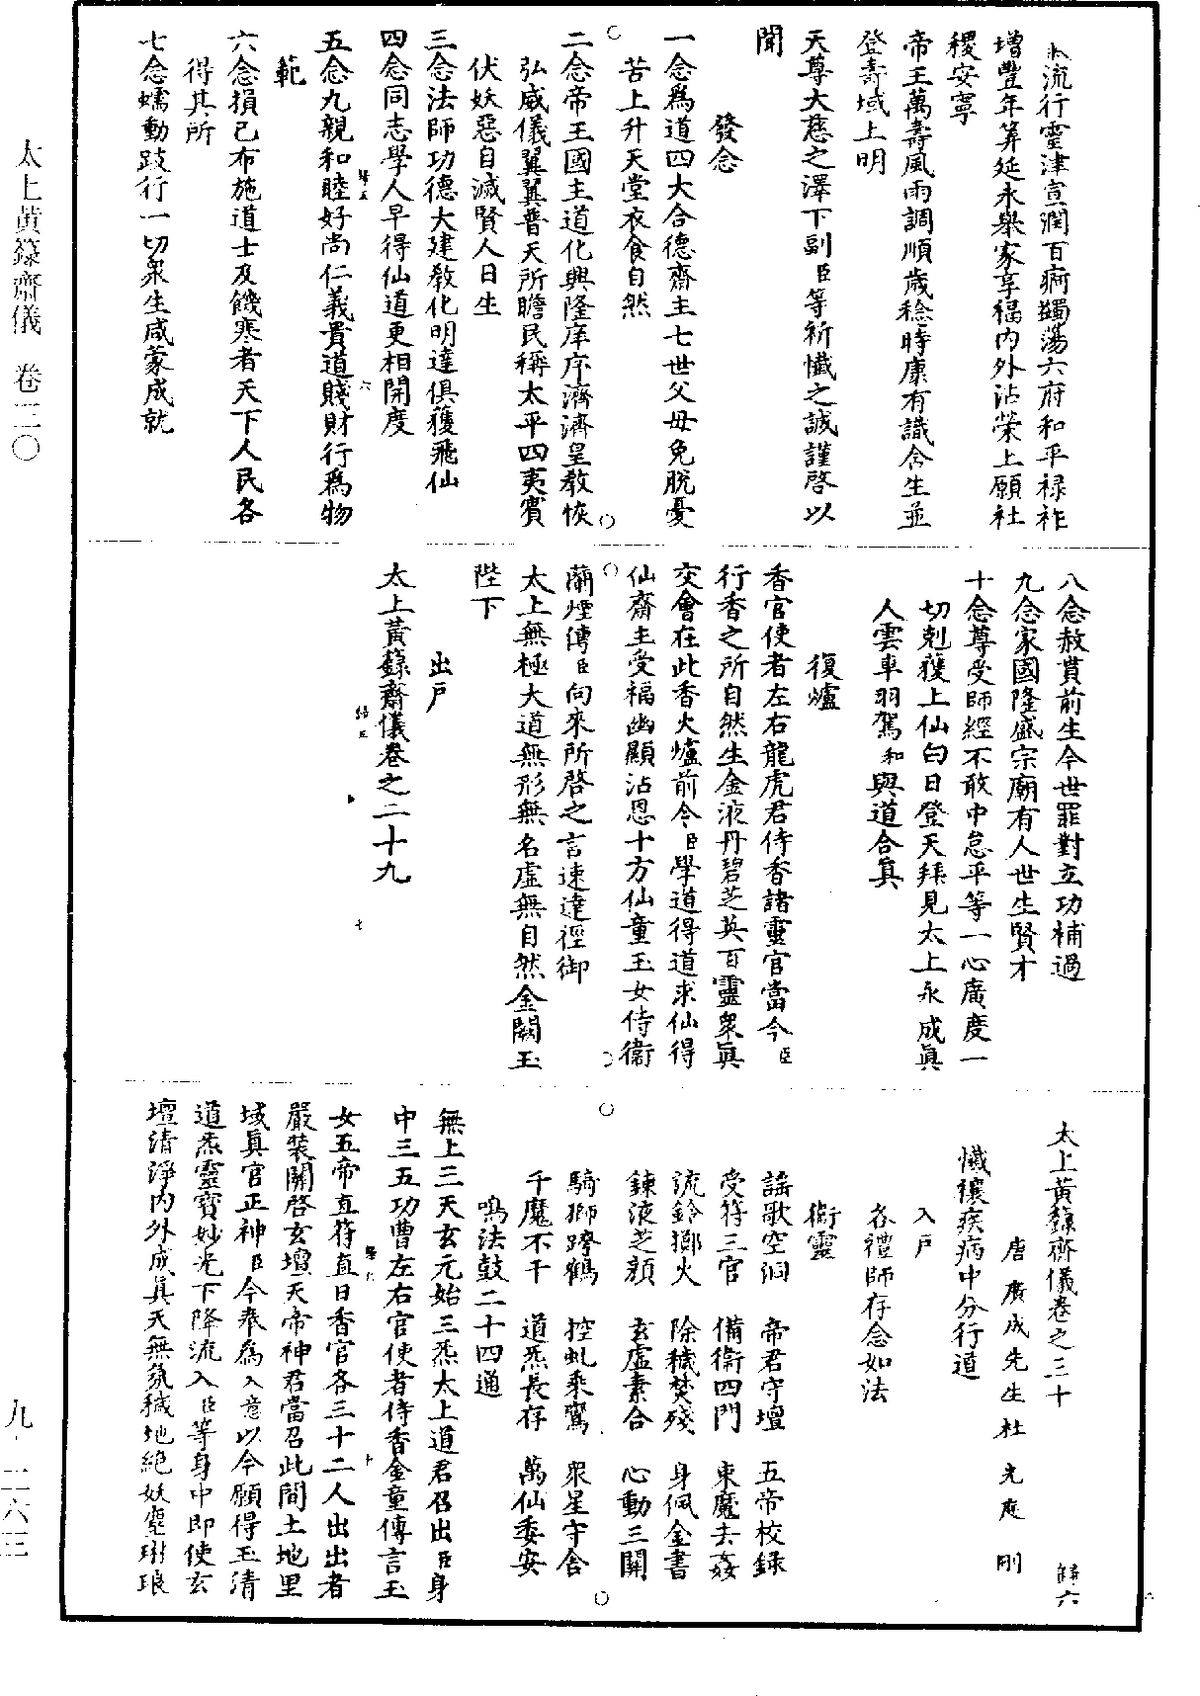 太上黃籙齋儀 卷三〇
九·二六三
水流行靈津宣潤百痾蠲蕩六府和平祿祚
增豐年筭延永舉家享福內外沾榮上願社
稷安寧
帝王萬壽風雨調順歲稔時康有識含生並
登壽域上明
天尊大慈之澤下副臣等祈懺之誠謹啓以
聞
發念
一念爲道四大合德齋主七世父母免脫憂
苦上升天堂衣食自然
二念帝王國主道化興隆庠序濟濟皇教恢
弘威儀翼翼普天所瞻民稱太平四夷賓
伏妖惡自滅賢人日生
三念法師功德大建敎化明達俱獲飛仙
四念同志學人早得仙道更相開度
五念九親和睦好尚仁義貴道賤財行爲物
範
六念損己布施道士及饑寒者天下人民各
得其所
七念蠕動跂行一切衆生咸蒙成就
八念赦貰前生今世罪對立功補過
九念家國隆盛宗廟有人世生賢才
十念尊受師經不敢中怠平等一心廣度一
切剋獲上仙白日登天拜見太上永成眞
人雲車羽駕和與道合眞
復爐
香官使者左右龍虎君侍香諸靈官當今臣
行香之所自然生金液丹碧芝英百靈衆眞
交會在此香火爐前令臣學道得道求仙得
仙齋主受福幽顯沾恩十方仙童玉女侍衞
蘭煙傳臣向來所啓之言速達徑御
太上無極大道無形無名虛無自然金闕玉
陛下
出戶
太上黃籙齋儀卷之二十九
七
太上黃籙齋儀卷之三十
唐廣成先生杜光庭刪
懺禳疾病中分行道
入戶
各禮師存念如法
衞靈
謠歌空洞 帝君守壇 五帝校錄
受符三官 備衞四門 東魔去姦
流鈴擲火 除穢焚殘 身佩金書
鍊液芝顏 玄虛素合 心動三關
騎獅跨鶴 控虬乘鸞 衆星守舍
千魔不干 道炁長存 萬仙委安
鳴法鼓二十四通
無上三天玄元始三炁太上道君召出臣身
中三五功曹左右官使者侍香金童傳言玉
女五帝直符直日香官各三十二人出出者
嚴裝關啓玄壇天帝神君當召此間土地里
域眞官正神臣今奉爲入意以今願得玉清
道炁靈寶妙光下降流入臣等身中即使玄
壇清淨內外成眞天無氛穢地絕妖塵琳琅